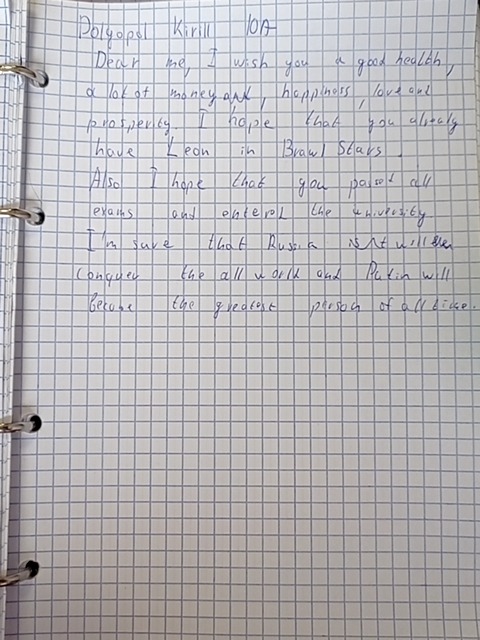 Dolgopol Kirill 10A
Dear me, I wish you a good health,
a lot of money and, happiness, love and
prosperity. I hope that you already
have Leon in Brawl Stars.
Also I hope that you passed all
exams and entered the university
I'm sure that Russia will
conquer the all world and Putin will
become the greatest person of all time.